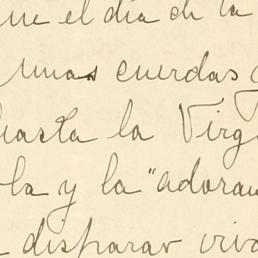 ue el día de la
unas cuerdas
hasta la Virg
la y la "adora
disparar viv